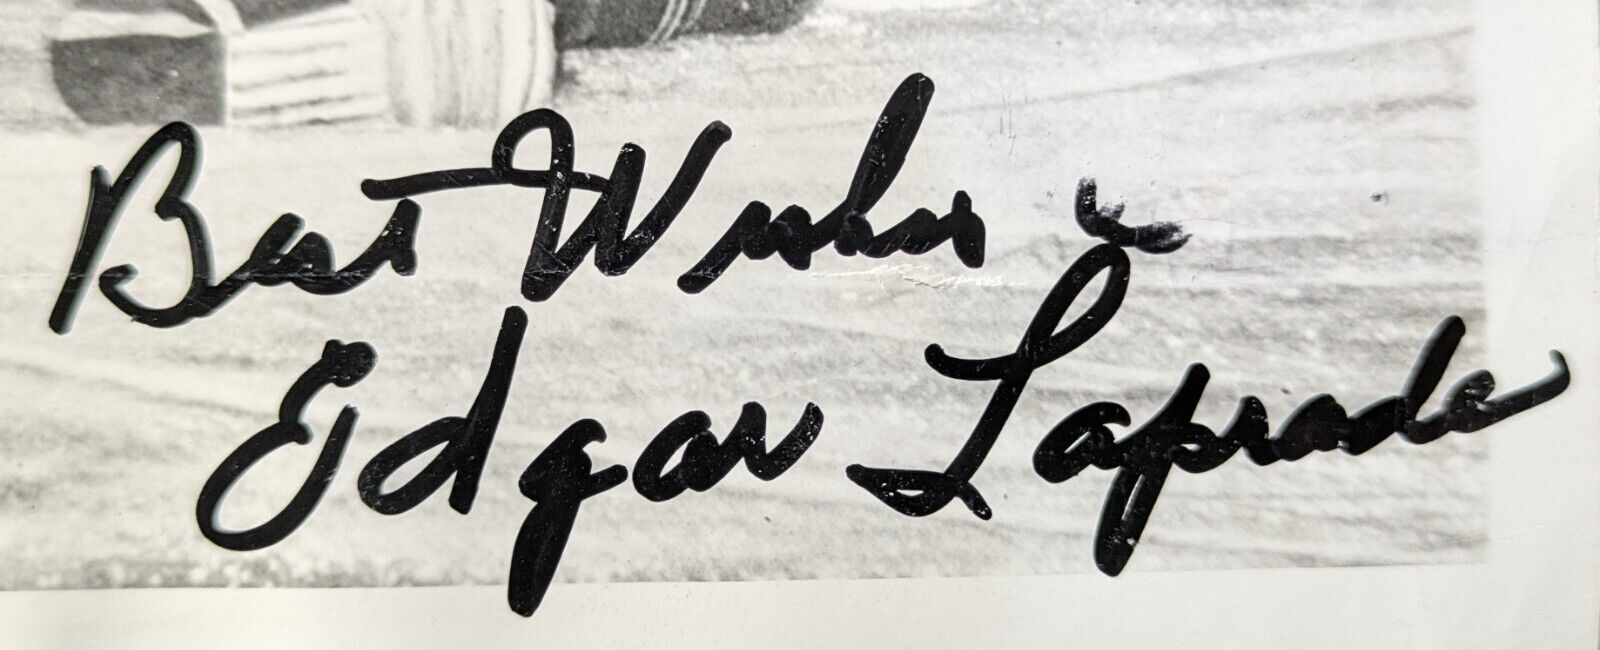 Best Wishes
Edgar Laprade